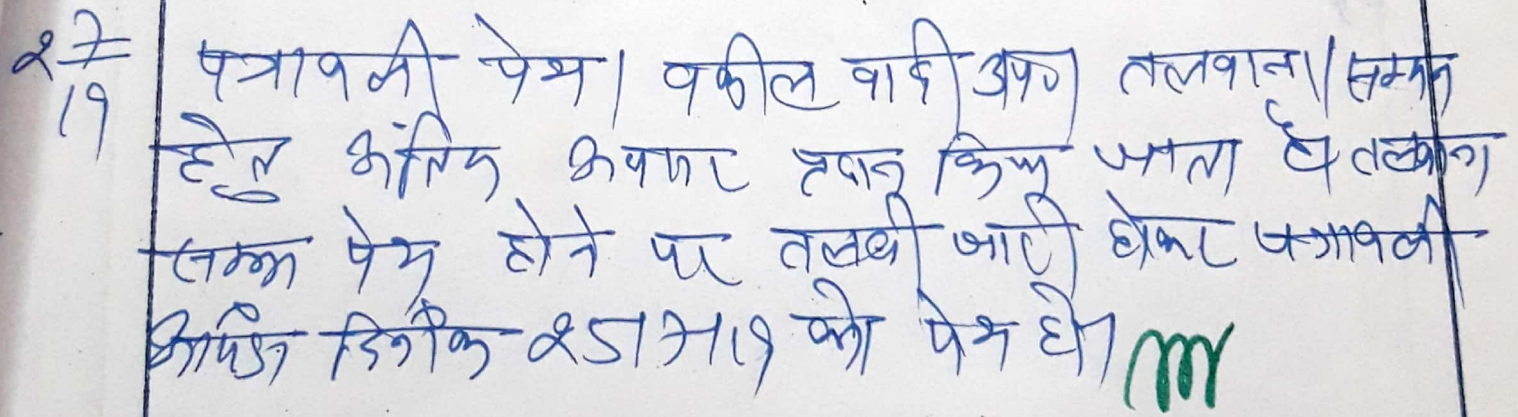 2/7/19 पत्रावली पेश। वकील वादी उप0 तलवाना/सम्मन
हेतु अंतिम अवसर प्रदान किया जाता है तलवाना
सम्मन पेश होने पर तलबी जारी होकर पत्रावली
दिनांक 25/7/19 को पेश हो।